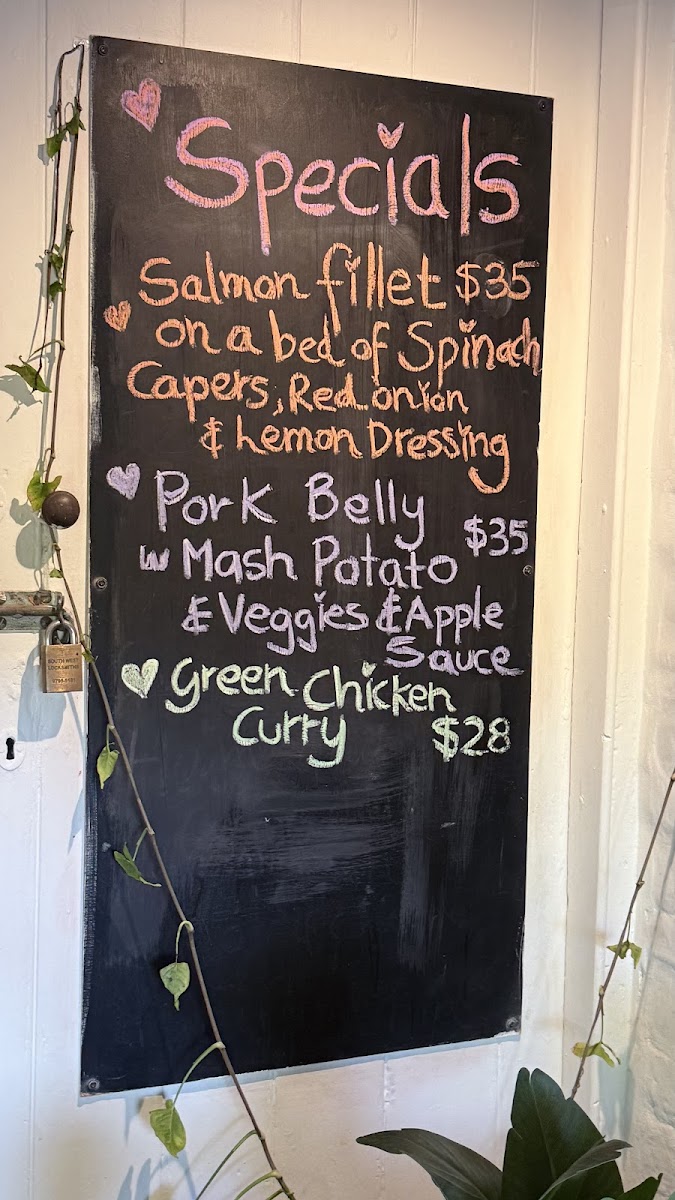 Specials
Salmon fillet $35
on a bed of Spinach
Capers, Red onion
& Lemon Dressing
Pork Belly
$35
w Mash Potato
& Veggies & Apple
Sauce
Green Chicken
Curry $28
SOUTH WEST
LOCKSMITHS